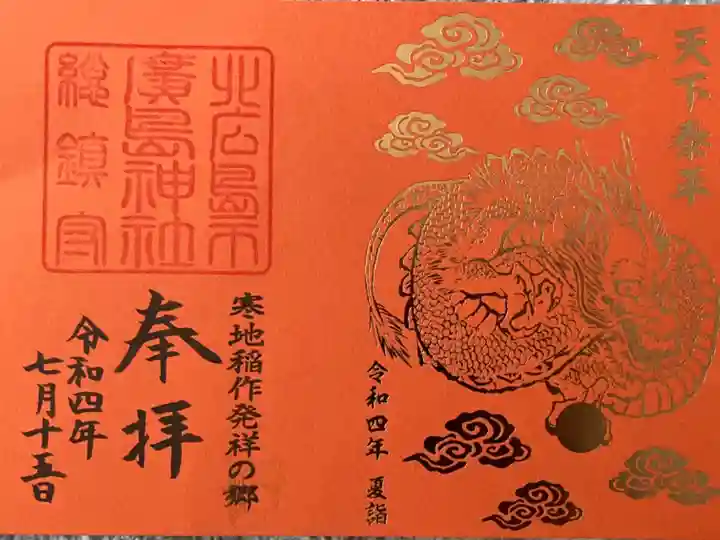 天下泰平
令和四年 夏詣
北広島市
廣島神社
総鎮守
寒地稲作発祥の郷
奉拝
令和四年
七月十五日